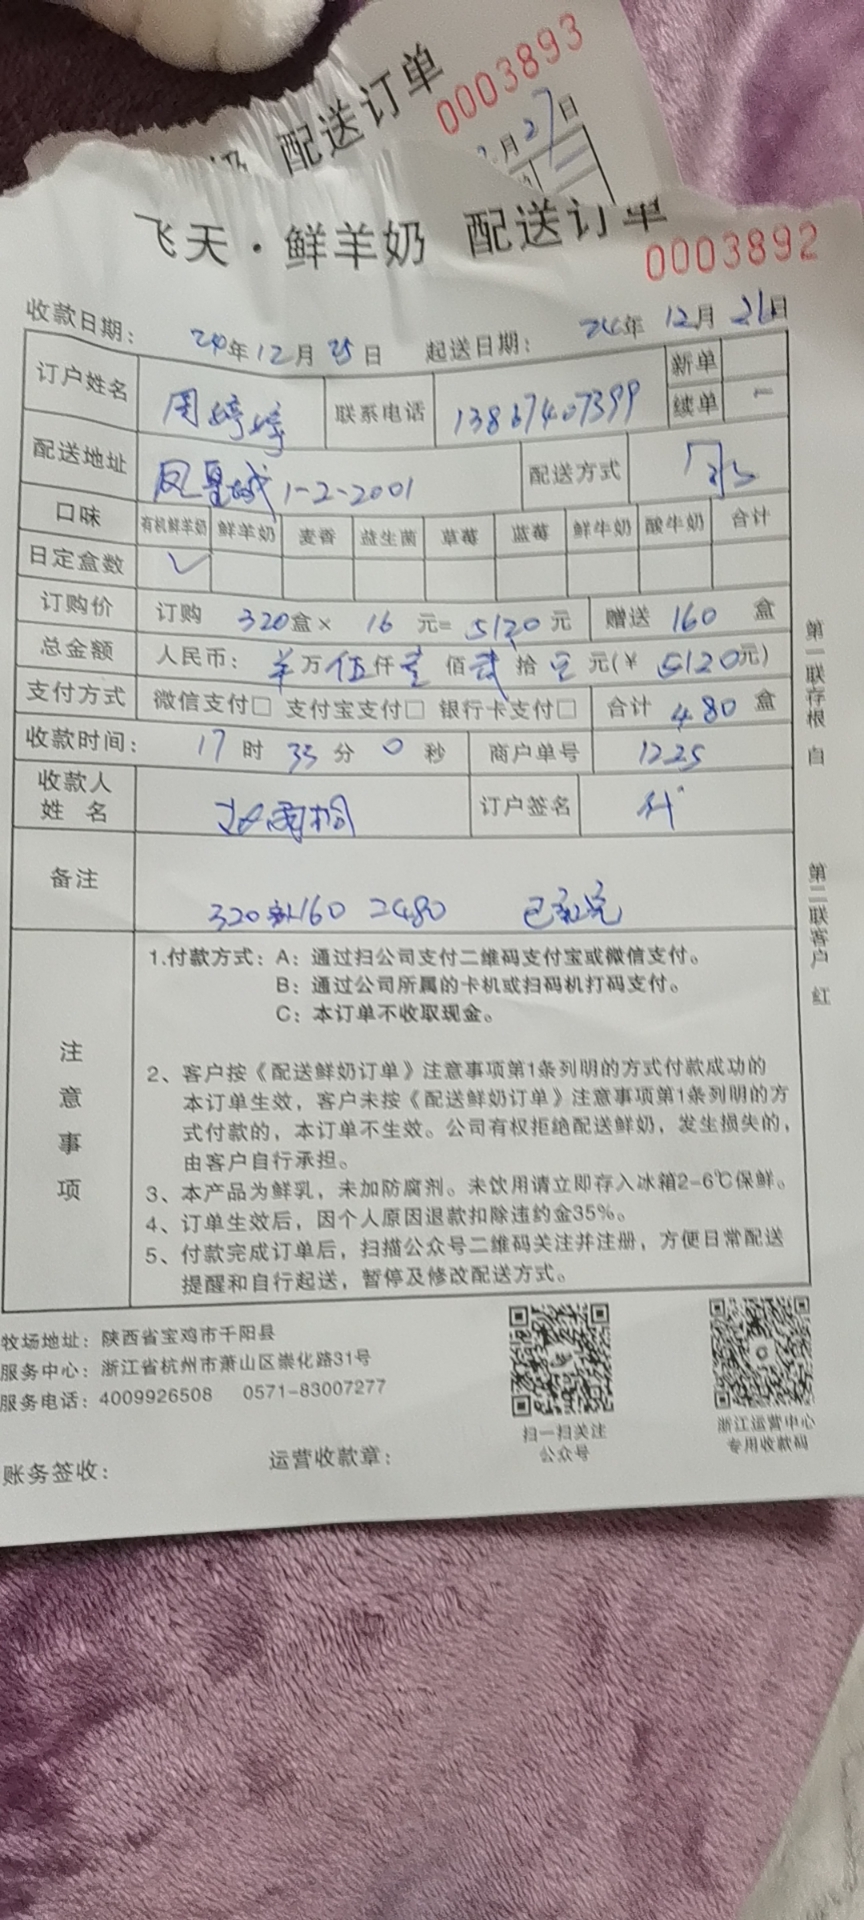 配送订单
0003893
月27日
飞天·鲜羊奶 配送订单
0003892
收款日期： 24年12月25日 起送日期： 24年12月26日
订户姓名 周婷婷 联系电话 13867407399 新单
续单
配送地址 凤凰城1-2-2001 配送方式
口味 有机鲜羊奶 鲜羊奶 麦香 益生菌 草莓 蓝莓 鲜牛奶 酸牛奶 合计
日定盒数 ✓
订购价 订购 320盒× 16 元= 5120元 赠送 160 盒
总金额 人民币： 万伍仟壹佰贰拾元(¥ 5120元)
支付方式 微信支付□ 支付宝支付□ 银行卡支付□ 合计 480 盒
收款时间： 17时33分0秒 商户单号 1225
收款人姓名 订户签名
备注 320 160 2480
注意事项
1.付款方式：A：通过扫公司支付二维码支付宝或微信支付。
B：通过公司所属的卡机或扫码机打码支付。
C：本订单不收取现金。
2、客户按《配送鲜奶订单》注意事项第1条列明的方式付款成功的
本订单生效，客户未按《配送鲜奶订单》注意事项第1条列明的方
式付款的，本订单不生效。公司有权拒绝配送鲜奶，发生损失的，
由客户自行承担。
3、本产品为鲜乳，未加防腐剂。未饮用请立即存入冰箱2-6℃保鲜。
4、订单生效后，因个人原因退款扣除违约金35%。
5、付款完成订单后，扫描公众号二维码关注并注册，方便日常配送
提醒和自行起送，暂停及修改配送方式。
第一联存根 白
第二联客户 红
牧场地址：陕西省宝鸡市千阳县
服务中心：浙江省杭州市萧山区崇化路31号
服务电话：4009926508 0571-83007277
扫一扫关注
公众号
浙江运营中心
专用收款码
账务签收： 运营收款章：